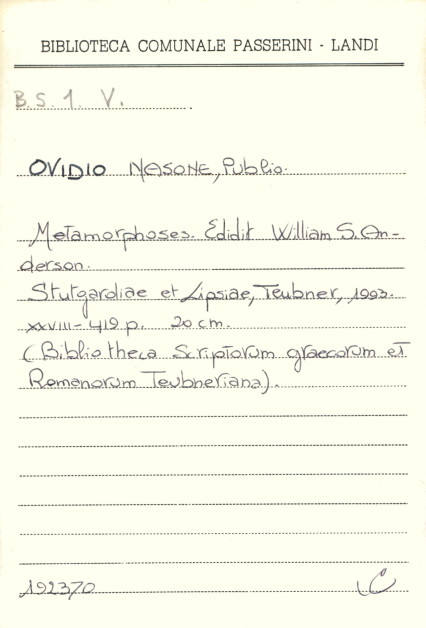 BIBLIOTECA COMUNALE PASSERINI - LANDI
B.S. 1. V.
OVIDIO NASONE, Publio.
Metamorphoses. Edidit William S. An-
derson.
Stutgardiae et Lipsiae, Teubner, 1993.
XXVIII-419 p. 20 cm.
(Bibliotheca Scriptorum graecorum et
Romanorum Teubneriana).
192370